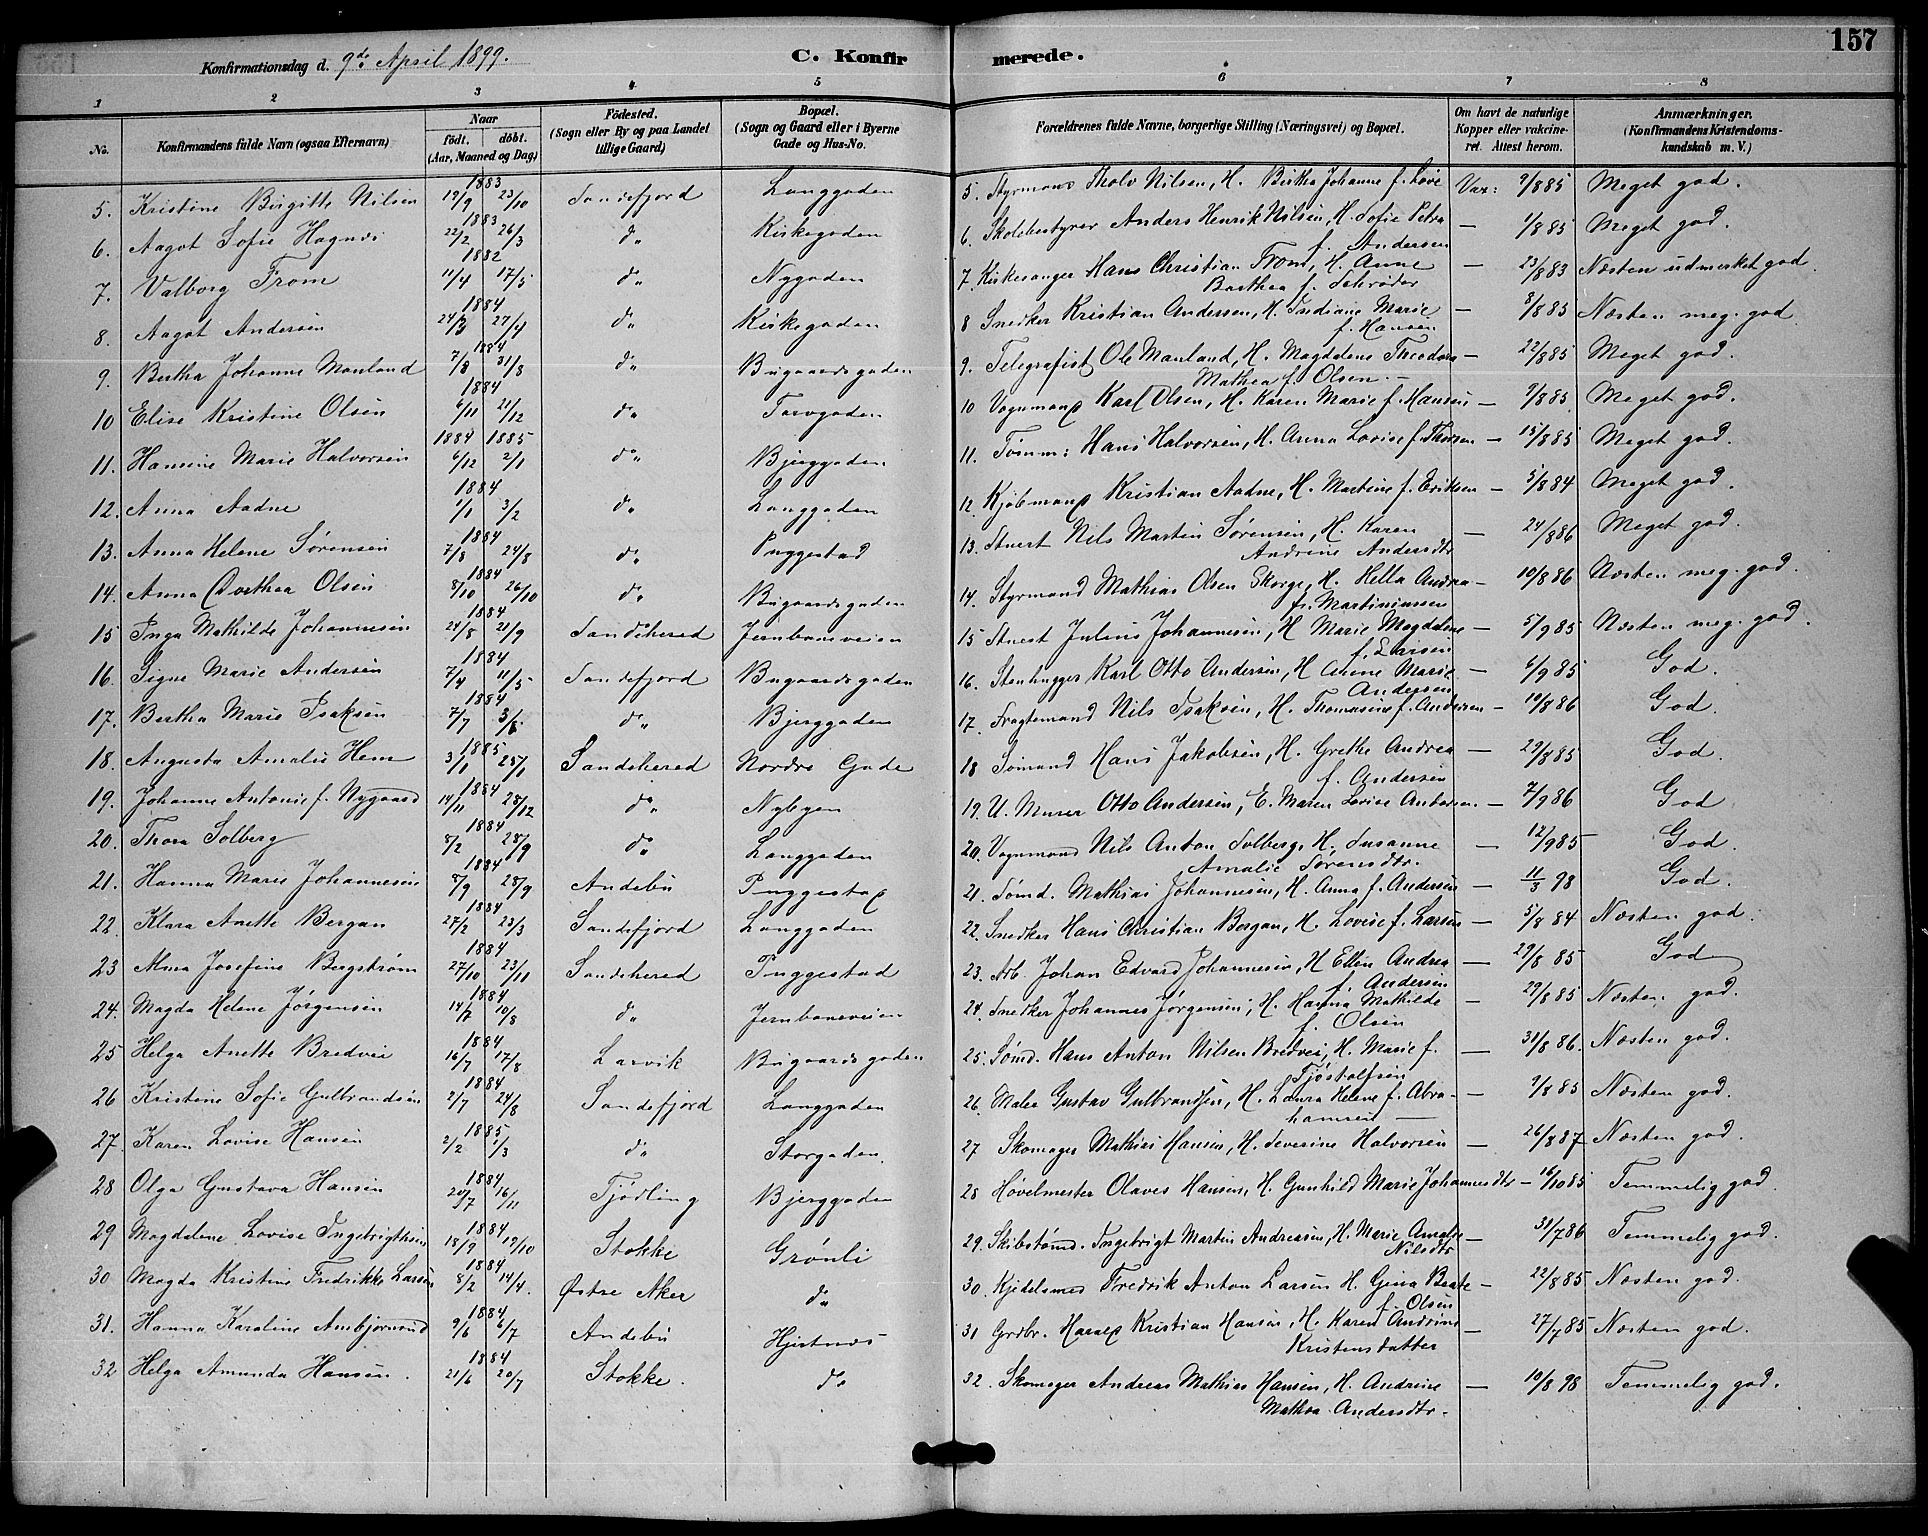 157
Konfirmationsdag d. 9de April 1899. C. Konfirmerede.
1 2 3 4 5 6 7 8
No. Konfirmandens fulde Navn (ogsaa Efternavn) Naar födt. döbt. (Aar, Maaned og Dag) Födested. (Sogn eller By og paa Landet tillige Gaard) Bopæl. (Sogn og Gaard eller i Byerne Gade og Hus-No. Forældrenes fulde Navne, borgerlige Stilling (Næringsvei) og Bopæl. Om havt de naturlige Kopper eller vakcineret. Attest herom. Anmærkninger. (Konfirmandens Kristendomskundskab m. V.)
5. Kristine Birgitte Nilsen 1883 19/9 23/10 Sandefjord Langgaden 5. Styrmand Tholv Nilsen, H. Bertha Johanne f. Love Vac: 9/8 85 Meget god.
6. Aagot Sofie Hagnes 1883 22/2 26/3 do Kirkegaden 6. Skolebestyrer Anders Henrik Nilsen, H. Sofie Petra f. Andersen — 1/8 85 Meget god.
7. Valborg From 1882 11/4 17/5 do Nygaden 7. Kirkesanger Hans Christian From, H. Anne Barthea f. Schrøder — 23/8 83 Næsten udmerket god.
8. Aagot Andersen 1884 24/3 27/4 do Kirkegaden 8 Snedker Kristian Andersen, H. Indiane Marie f. Hansen — 8/8 85 Næsten meg. god
9. Bertha Johanne Manland 1884 7/8 31/8 do Bugaardsgaden 9. Telegrafist Ole Manland, H. Magdalene Theodora Mathea f. Olsen. — 22/8 85 Meget god.
10 Elise Kristine Olsen 1884 6/11 21/12 do Torvgaden 10 Vognmand Karl Olsen, H. Karen Marie f. Hansen — 9/8 85 Meget god.
11. Hansine Marie Halvorsen 1884 1885 6/12 2/1 do Bjerggaden 11. Tømm: Hans Halvorsen, H. Anna Lovise f. Thorsen — 15/8 85 Meget god.
12. Anna Aadne 1884 1/1 3/2 do Langgaden 12. Kjøbmand Kristian Aadne, H. Martine f. Eriksen — 5/8 84 Meget god.
13. Anna Helene Sørensen 1884 7/8 24/8 do Puggestad 13. Stuert Nils Martin Sørensen, H. Karen Andrine Andersdtr — 24/8 86 Meget god.
14. Anna Dorthea Olsen 1884 8/10 26/10 do Bugaardsgaden 14. Styrmand Mathias Olsen Skorge, H. Hella Andra f. Martiniussen — 10/8 86 Næsten meg. god.
15 Inga Mathilde Johannesen 1884 24/8 21/9 Sandeherred Jernbaneveien 15 Stuert Julius Johannesen, H Marie Magdalene f. Larsen — 5/9 85 Næsten meg. god.
16. Signe Marie Andersen 1884 7/4 11/5 Sandefjord Bugaardsgaden 16. Stenhugger Karl Otto Andersen, H Anine Marie Andersen — 6/9 85 God.
17. Bertha Marie Isaksen 1884 7/7 3/8 do Bjerggaden 17. Fragtemand Nils Isaksen, H. Thomasine f. Andersen — 10/8 86 God.
18. Augusta Amalie Hem 1885 3/1 25/1 Sandeherred Nordre Gade 18 Sømand Hans Jakobsen, H. Grethe Andrea f. Andersen — 29/8 85 God.
19. Johanne Antonie f. Nygaard 1884 14/11 28/12 do Nybyen 19. U. Murer Otto Andersen, E. Maren Lovise Antonsen — 7/9 86 God
20. Thora Solberg 1884 8/2 28/9 do Langgaden 20. Vognmand Nils Anton Solberg, H. Susanne Amalie Sørensdtr. — 12/9 85 God.
21. Hanna Marie Johannesen 1884 8/9 28/9 Andebu Puggestad 21. Sømd. Mathias Johannesen, H. Anna f. Andersen — 11/3 98 God.
22. Klara Anette Bergan 1884 27/2 23/3 Sandefjord Langgaden 22. Snedker Hans Christian Bergan, H. Lovise f. Larsen — 5/8 84 Næsten god.
23 Alma Josefine Bergstrøm 1884 27/10 23/11 Sandeherred Puggestad 23. Arb. Johan Edvard Johannesen, H Ellen Andrea f. Andersen — 29/8 85 God
24. Magda Helene Jørgensen 1884 14/7 10/8 do Jernbaneveien 24. Snedker Johannes Jørgensen, H. Hanna Mathilde f. Olsen — 29/8 85 Næsten god.
25 Helga Anette Bredvei 1884 16/7 17/8 Larvik Bugaardsgaden 25. Sømd. Hans Anton Nilsen Bredvei, H. Marie f. Tjøstolfsen — 31/8 86. Næsten god.
26 Kristine Sofie Gulbrandsen 1884 2/7 24/8 Sandefjord Langgaden 26. Maler Gustav Gulbrandsen, H. Laura Helene f. Abrahamsen — 9/8 85 Næsten god.
27. Karen Lovise Hansen 1885 2/2 1/3 do Storgaden. 27 Skomager Mathias Hansen, H. Severine Halvorsen — 26/8 87 Næsten god.
28 Olga Gustava Hansen 1884 20/7 16/11 Tjødling Bjerggaden 28 Høvelmester Olaves Hansen, H. Gunhild Marie Johannesdtr — 16/10 85 Temmelig god.
29 Magdalene Lovise Ingebrigtsen 1884 18/9 19/10 Stokke Grønli 29. Skibstømd. Ingebrigt Martin Andreasen, H. Marie Amalie Nilsdtr — 31/7 86 Temmelig god.
30 Magda Kristine Fredrikke Larsen 1884 8/2 14/4. Østre Aker do 30. Kjedelsmed Fredrik Anton Larsen H. Gina Beate f. Olsen — 22/8 85 Næsten god.
31. Hanna Karoline Ambjørnrød 1884 9/6 6/7 Andebu Hjertnes 31 Grdbr. Hans Kristian Hansen, H. Karen Andrine Kristensdatter — 27/7 85 Næsten god.
32 Helga Amunda Hansen. 1884 21/6 20/7 Stokke. do 32. Skomager Andreas Mathias Hansen, H. Andrine Mathea Andersdtr. — 10/8 98 Temmelig god.